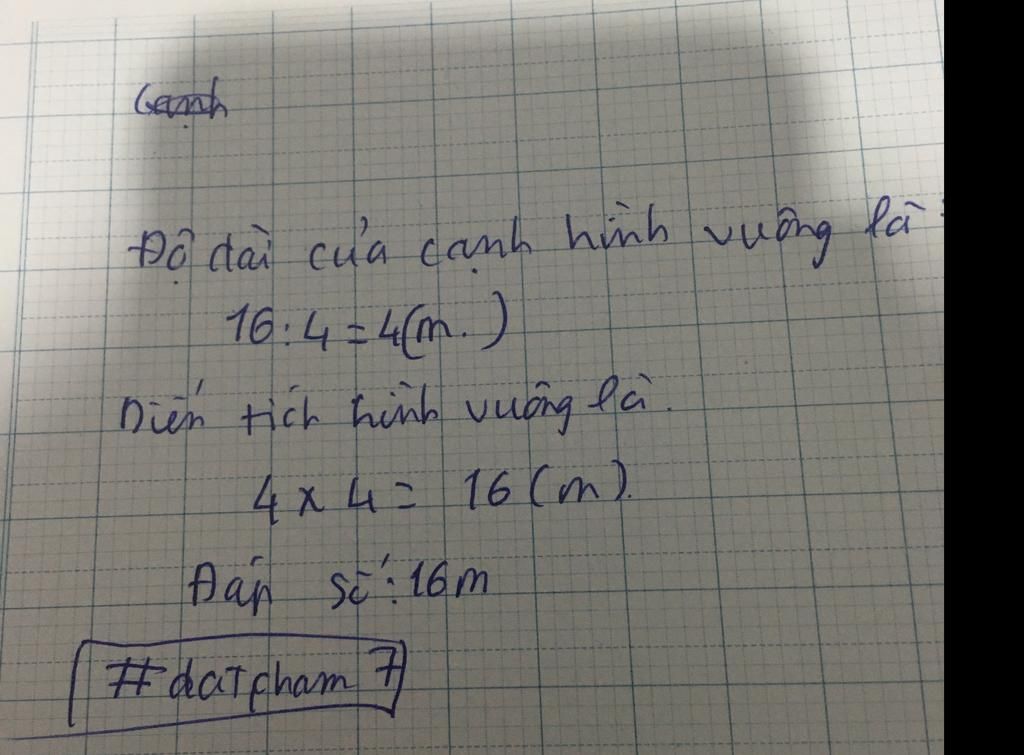 Độ dài của cạnh hình vuông là:
16 : 4 = 4 (m.)
Diến tích hình vuông là.
4 x 4 = 16 (m).
Đáp số: 16m
#datpham7